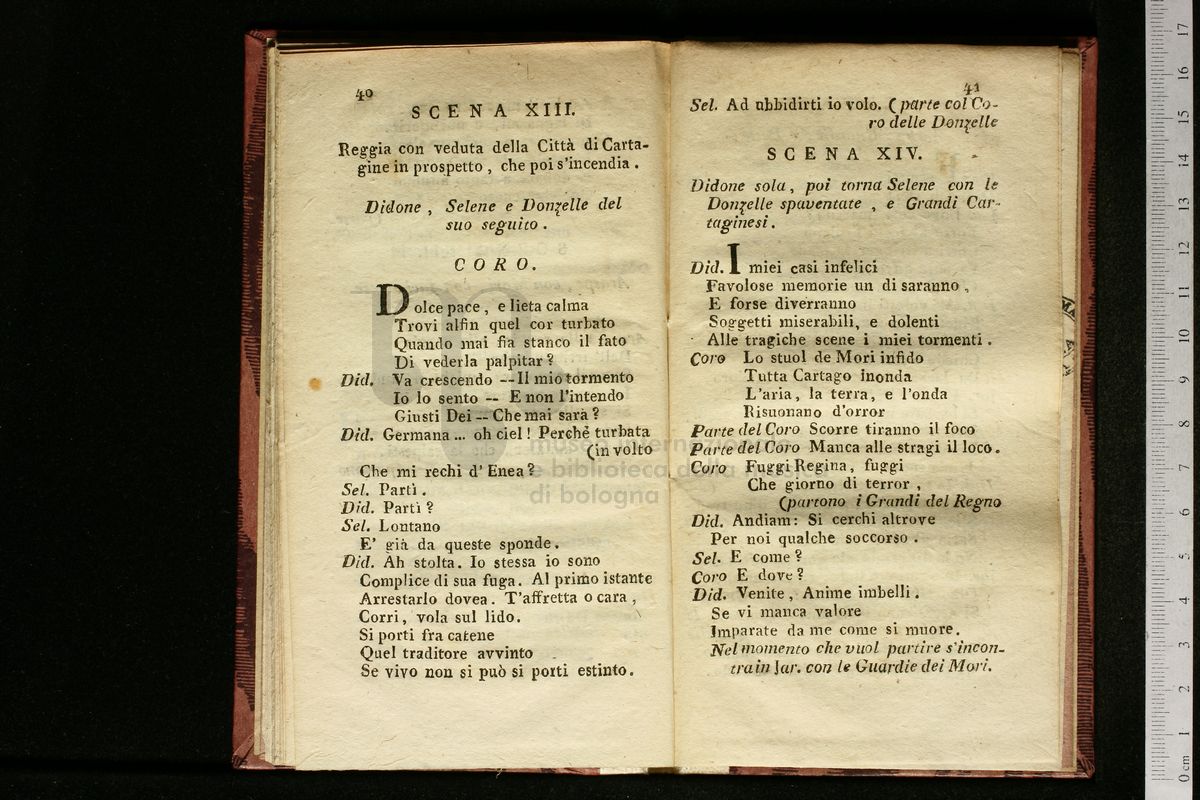 40
SCENA XIII.
Reggia con veduta della Città di Carta-
gine in prospetto, che poi s'incendia.
Didone, Selene e Donzelle del
suo seguito.
CORO.
Dolce pace, e lieta calma
Trovi alfin quel cor turbato
Quando mai fia stanco il fato
Di vederla palpitar?
Did. Va crescendo -- Il mio tormento
Io lo sento -- E non l'intendo
Giusti Dei -- Che mai sarà?
Did. Germana ... oh ciel! Perchè turbata
(in volto
Che mi rechi d'Enea?
Sel. Partì.
Did. Partì?
Sel. Lontano
E' già da queste sponde.
Did. Ah stolta. Io stessa io sono
Complice di sua fuga. Al primo istante
Arrestarlo dovea. T'affretta o cara,
Corri, vola sul lido.
Si porti fra catene
Quel traditore avvinto
Se vivo non si può si porti estinto.
41
Sel. Ad ubbidirti io volo. (parte col Co-
ro delle Donzelle
SCENA XIV.
Didone sola, poi torna Selene con le
Donzelle spaventate, e Grandi Car-
taginesi.
Did. I miei casi infelici
Favolose memorie un dì saranno,
E forse diverranno
Soggetti miserabili, e dolenti
Alle tragiche scene i miei tormenti.
Coro Lo stuol de Mori infido
Tutta Cartago inonda
L'aria, la terra, e l'onda
Risuonano d'orror
Parte del Coro Scorre tiranno il foco
Parte del Coro Manca alle stragi il loco.
Coro Fuggi Regina, fuggi
Che giorno di terror,
(partono i Grandi del Regno
Did. Andiam: Si cerchi altrove
Per noi qualche soccorso.
Sel. E come?
Coro E dove?
Did. Venite, Anime imbelli.
Se vi manca valore
Imparate da me come si muore.
Nel momento che vuol partire s'incon-
tra in Jar. con le Guardie dei Mori.
museo internazionale
e biblioteca della musica
di bologna
0 cm 1 2 3 4 5 6 7 8 9 10 11 12 13 14 15 16 17